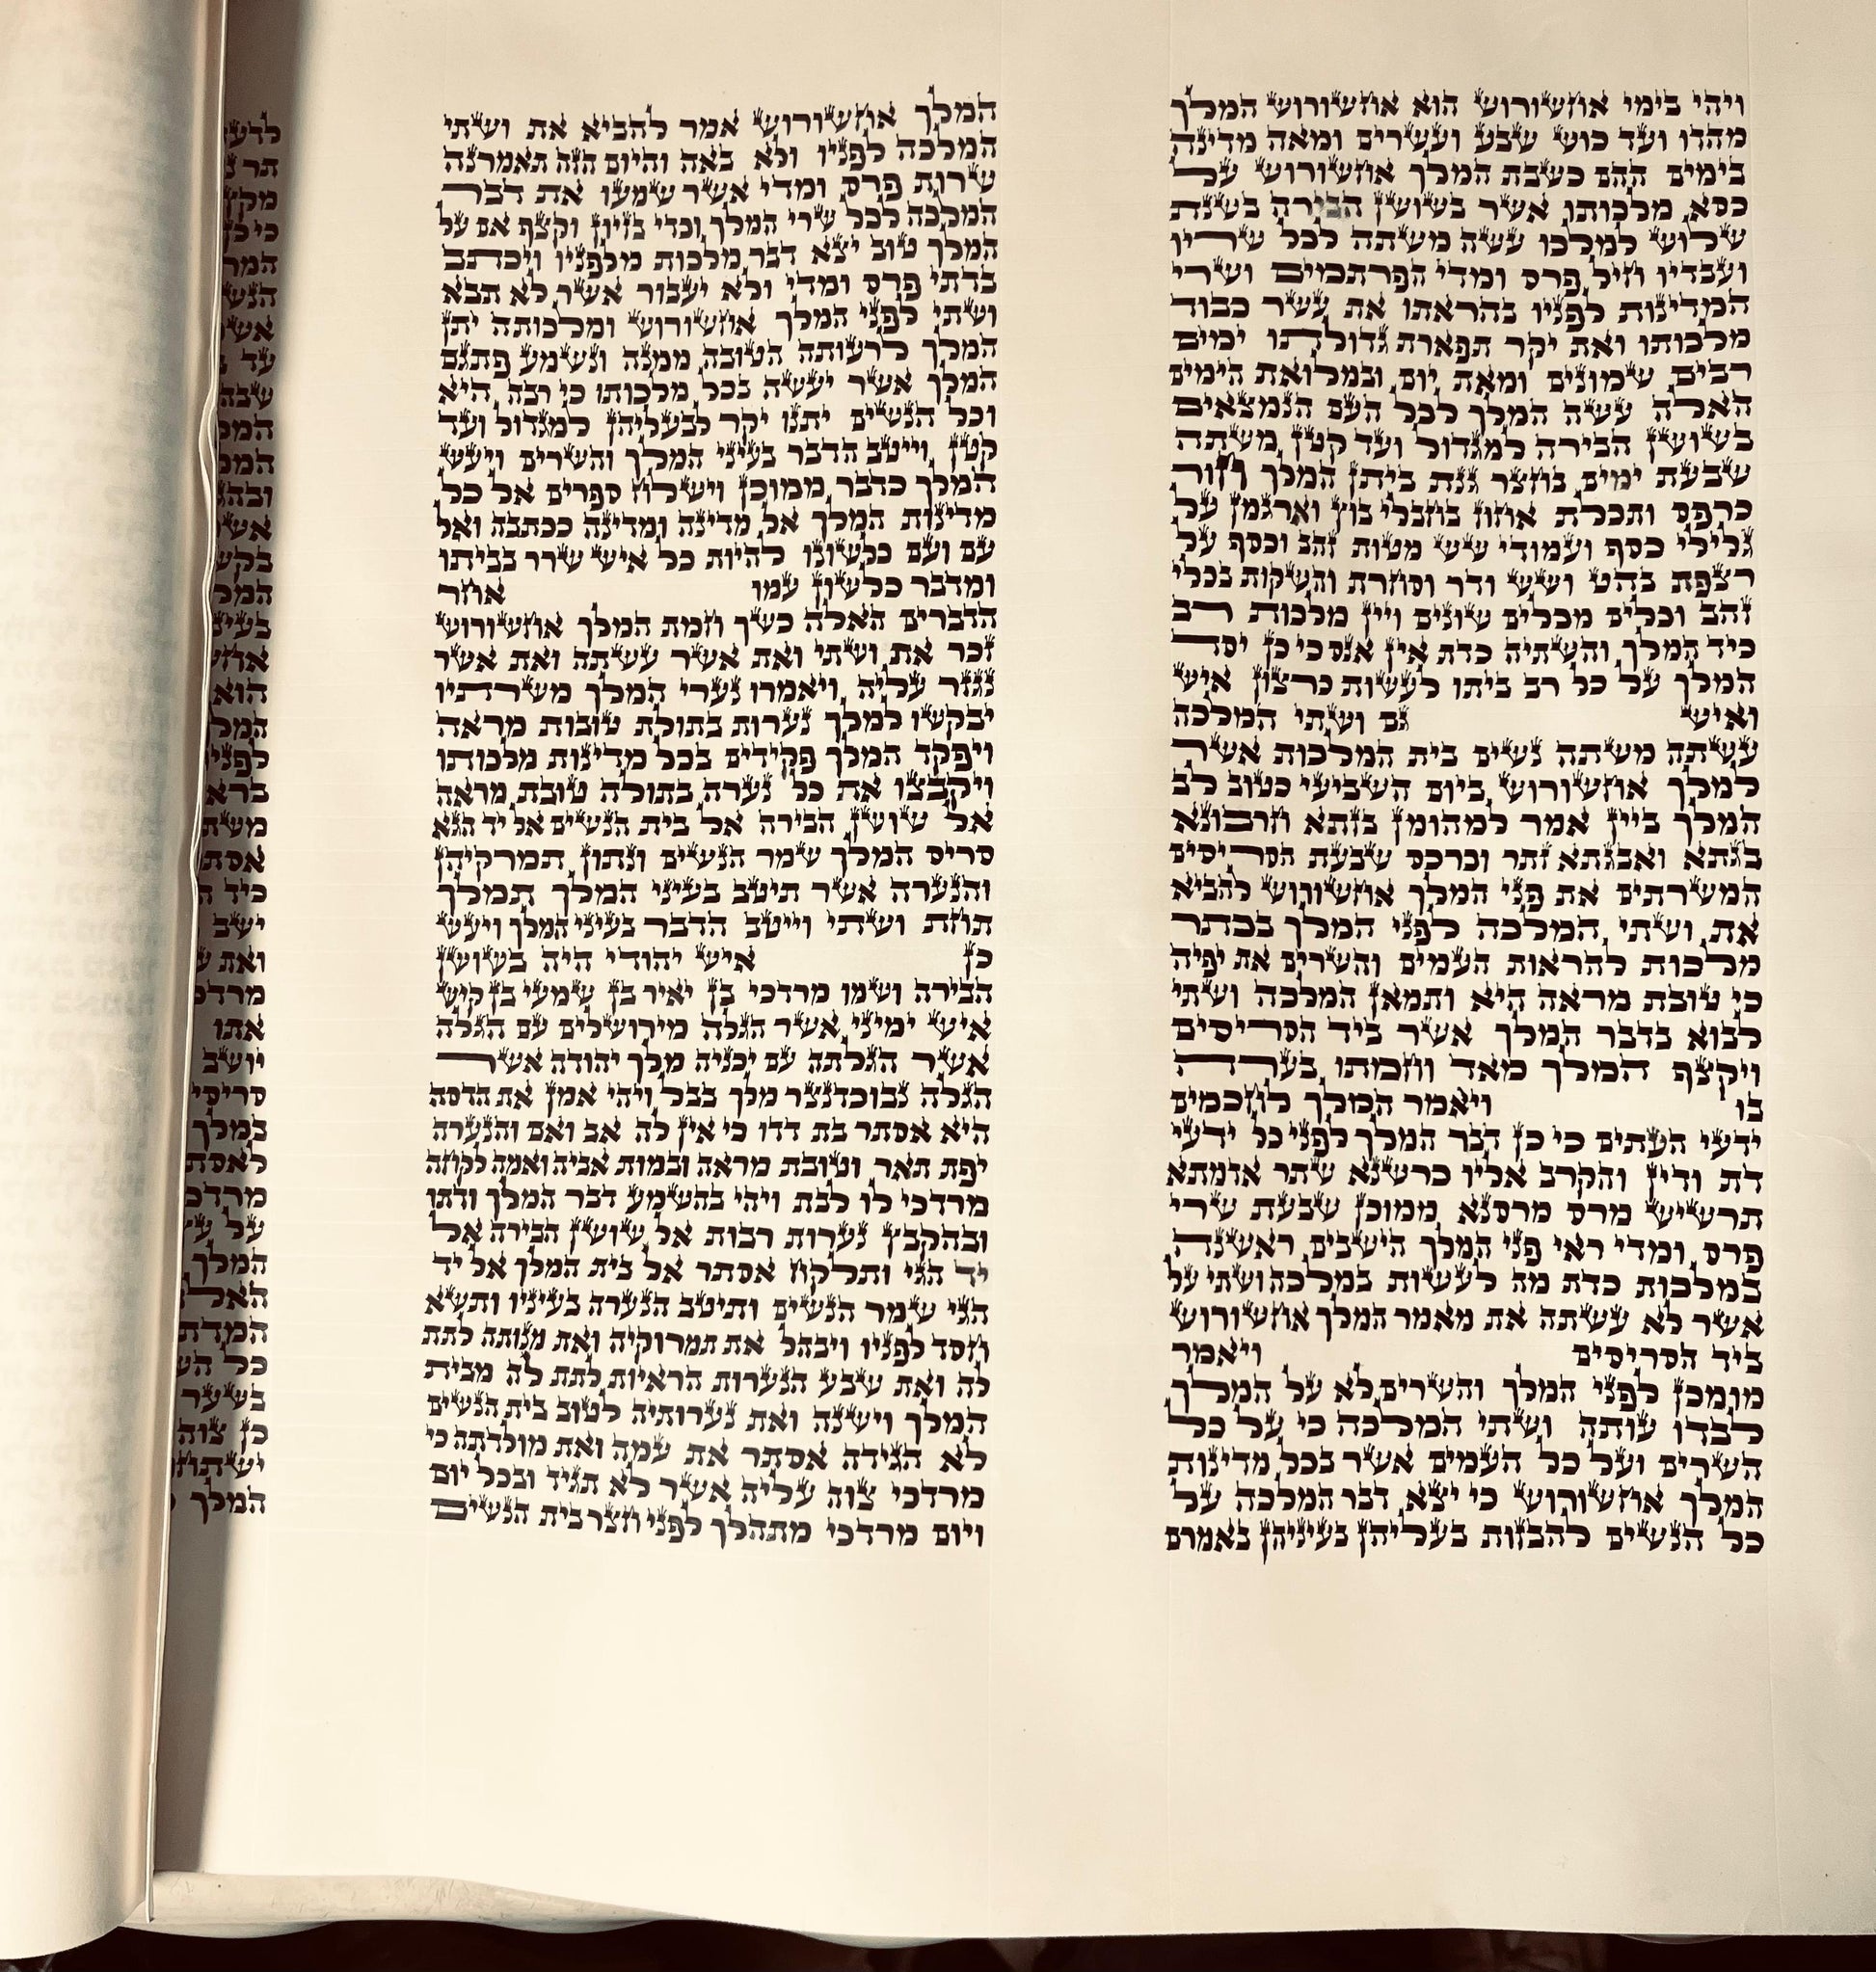 ויהי בימי אחשורוש הוא אחשורוש המלך
מהדו ועד כוש שבע ועשרים ומאה מדינה
בימים ההם כשבת המלך אחשורוש על
כסא מלכותו אשר בשושן הבירה בשנת
שלוש למלכו עשה משתה לכל שריו
ועבדיו חיל פרס ומדי הפרתמים ושרי
המדינות לפניו בהראתו את עשר כבוד
מלכותו ואת יקר תפארת גדולתו ימים
רבים שמונים ומאת יום ובמלואת הימים
האלה עשה המלך לכל העם הנמצאים
בשושן הבירה למגדול ועד קטן משתה
שבעת ימים בחצר גנת ביתן המלך חור
כרפס ותכלת אחוז בחבלי בוץ וארגמן על
גלילי כסף ועמודי שש מטות זהב וכסף על
רצפת בהט ושש ודר וסחרת והשקות בכלי
זהב וכלים מכלים שונים ויין מלכות רב
כיד המלך והשתיה כדת אין אנס כי כן יסד
המלך על כל רב ביתו לעשות כרצון איש
ואיש גם ושתי המלכה
עשתה משתה נשים בית המלכות אשר
למלך אחשורוש ביום השביעי כטוב לב
המלך ביין אמר למהומן בזתא חרבונא
בגתא ואבגתא זתר וכרכס שבעת הסריסים
המשרתים את פני המלך אחשורוש להביא
את ושתי המלכה לפני המלך בכתר
מלכות להראות העמים והשרים את יפיה
כי טובת מראה היא ותמאן המלכה ושתי
לבוא בדבר המלך אשר ביד הסריסים
ויקצף המלך מאד וחמתו בערה
בו ויאמר המלך לחכמים
ידעי העתים כי כן דבר המלך לפני כל ידעי
דת ודין והקרב אליו כרשנא שתר אדמתא
תרשיש מרס מרסנא ממוכן שבעת שרי
פרס ומדי ראי פני המלך הישבים ראשנה
במלכות כדת מה לעשות במלכה ושתי על
אשר לא עשתה את מאמר המלך אחשורוש
ביד הסריסים ויאמר
מומכן לפני המלך והשרים לא על המלך
לבדו עותה ושתי המלכה כי על כל
השרים ועל כל העמים אשר בכל מדינות
המלך אחשורוש כי יצא דבר המלכה על
כל הנשים להבזות בעליהן בעיניהן באמרם
המלך אחשורוש אמר להביא את ושתי
המלכה לפניו ולא באה והיום הזה תאמרנה
שרות פרס ומדי אשר שמעו את דבר
המלכה לכל שרי המלך וכדי בזיון וקצף אם על
המלך טוב יצא דבר מלכות מלפניו ויכתב
בדתי פרס ומדי ולא יעבור אשר לא תבא
ושתי לפני המלך אחשורוש ומלכותה יתן
המלך לרעותה הטובה ממנה ונשמע פתגם
המלך אשר יעשה בכל מלכותו כי רבה היא
וכל הנשים יתנו יקר לבעליהן למגדול ועד
קטן וייטב הדבר בעיני המלך והשרים ויעש
המלך כדבר ממוכן וישלח ספרים אל כל
מדינות המלך אל מדינה ומדינה ככתבה ואל
עם ועם כלשונו להיות כל איש שרר בביתו
ומדבר כלשון עמו אחר
הדברים האלה כשך חמת המלך אחשורוש
זכר את ושתי ואת אשר עשתה ואת אשר
נגזר עליה ויאמרו נערי המלך משרתיו
יבקשו למלך נערות בתולת טובות מראה
ויפקד המלך פקידים בכל מדינות מלכותו
ויקבצו את כל נערה בתולה טובת מראה
אל שושן הבירה אל בית הנשים אל יד הגא
סריס המלך שמר הנשים ונתון תמרקיהן
והנערה אשר תיטב בעיני המלך תמלך
תחת ושתי וייטב הדבר בעיני המלך ויעש
כן איש יהודי היה בשושן
הבירה ושמו מרדכי בן יאיר בן שמעי בן קיש
איש ימיני אשר הגלה מירושלים עם הגלה
אשר הגלתה עם יכניה מלך יהודה אשר
הגלה נבוכדנצר מלך בבל ויהי אמן את הדסה
היא אסתר בת דדו כי אין לה אב ואם והנערה
יפת תאר וטובת מראה ובמות אביה ואמה לקחה
מרדכי לו לבת ויהי בהשמע דבר המלך ודתו
ובהקבץ נערות רבות אל שושן הבירה אל
יד הגי ותלקח אסתר אל בית המלך אל יד
הגי שמר הנשים ותיטב הנערה בעיניו ותשא
חסד לפניו ויבהל את תמרוקיה ואת מנותה לתת
לה ואת שבע הנערות הראיות לתת לה מבית
המלך וישנה ואת נערותיה לטוב בית הנשים
לא הגידה אסתר את עמה ואת מולדתה כי
מרדכי צוה עליה אשר לא תגיד ובכל יום
ויום מרדכי מתהלך לפני חצר בית הנשים
תר
כי
עד
אשר
הוא
ישב
ואת
אתו
יושב
סריסי
במלך
על
המלך
כל
בשער
כן צוה
המלך